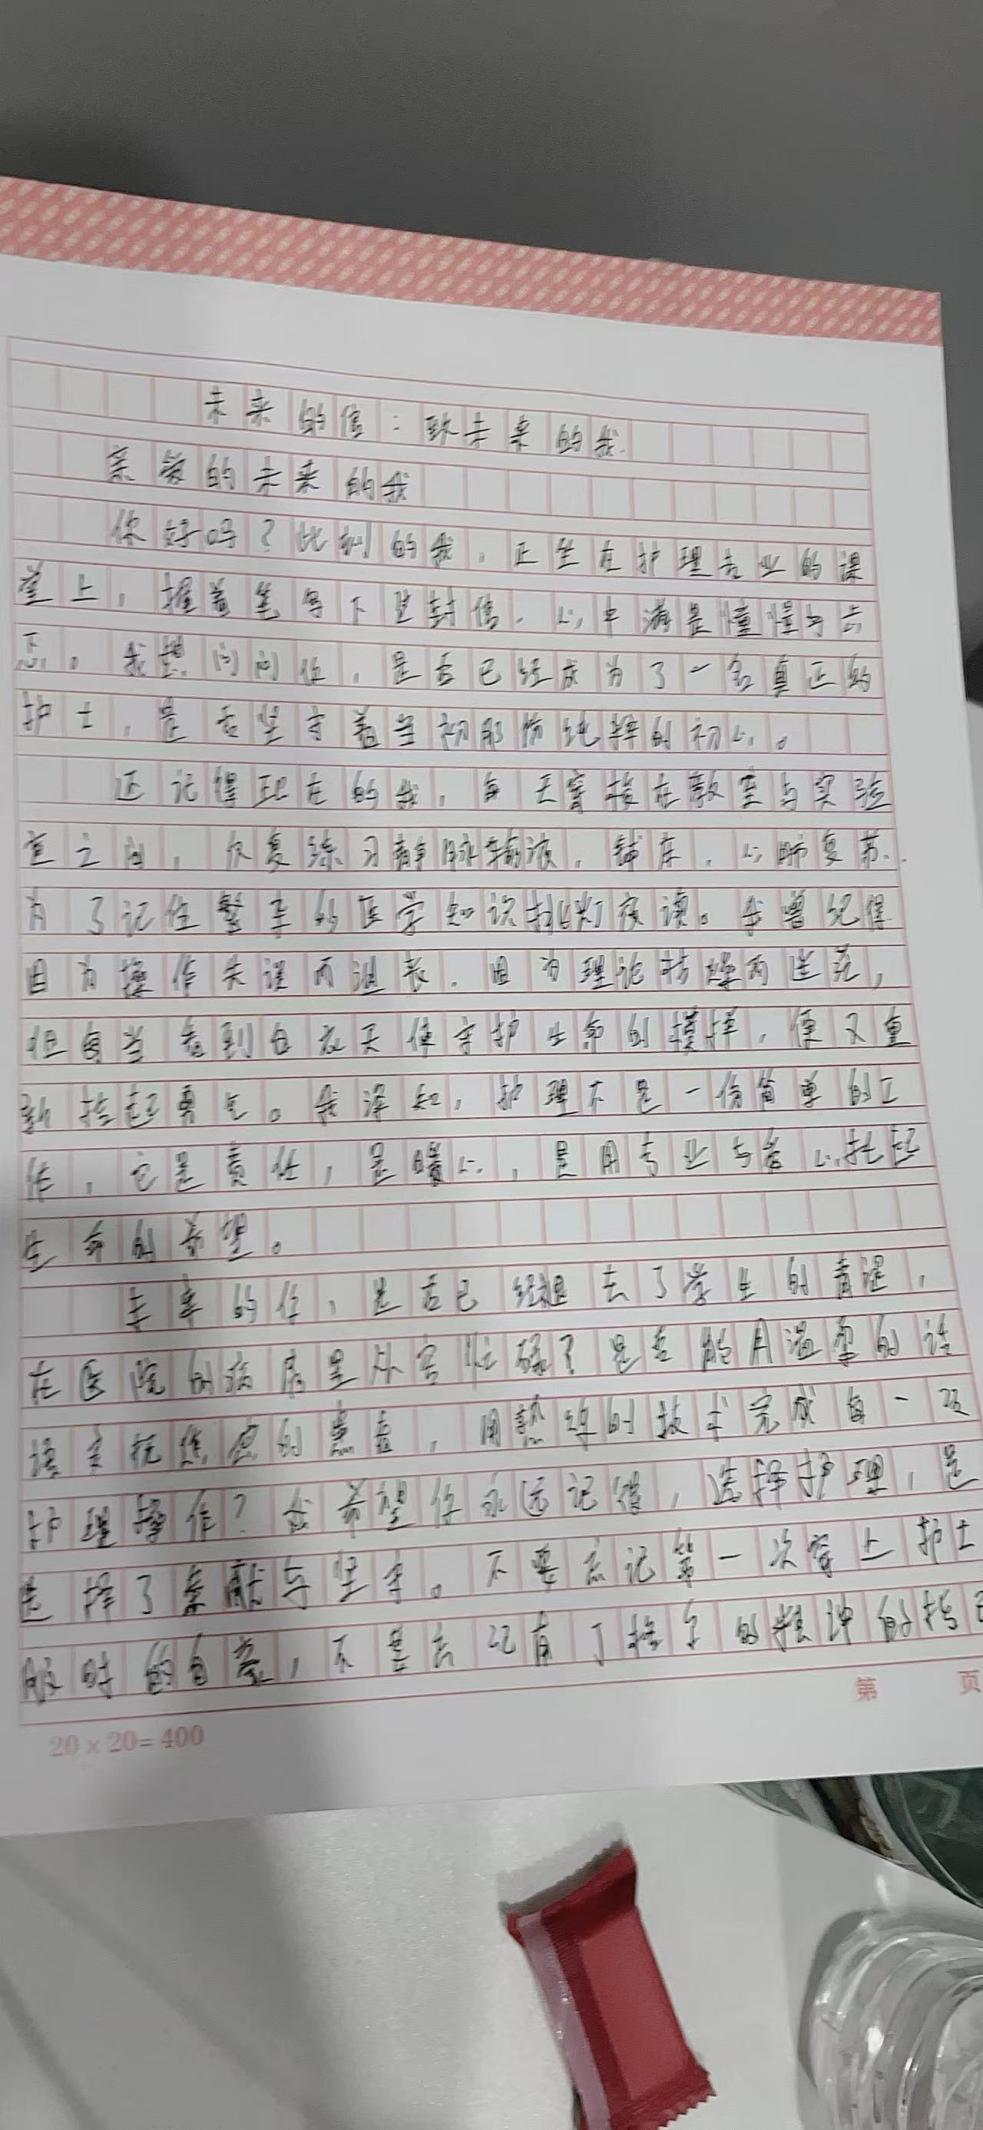 未来的信：致未来的我
亲爱的未来的我
你好吗？此刻的我，正坐在护理专业的课
堂上，握着笔写下这封信，心中满是憧憬与忐
忑。我想问问你，是否已经成为了一名真正的
护士，是否坚守着当初那份纯粹的初心。
还记得现在的我，每天穿梭在教室与实验
室之间，反复练习静脉输液，铺床，心肺复苏，
为了记住繁杂的医学知识挑灯夜读。我曾记得
因为操作失误而沮丧，因为理论枯燥而迷茫，
但每当看到白衣天使守护生命的模样，便又重
新拾起勇气。我深知，护理不是一份简单的工
作，它是责任，是暖心，是用专业与爱心托起
生命的希望。
未来的你，是否已经褪去了学生的青涩，
在医院的病房里从容忙碌？是否能用温柔的话
语安抚焦虑的患者，用熟练的技术完成每一项
护理操作？我希望你永远记得，选择护理，是
选择了奉献与坚守。不要忘记第一次穿上护士
服时的自豪，不要忘记有丁格尔的精神的指引
20×20=400
第 页